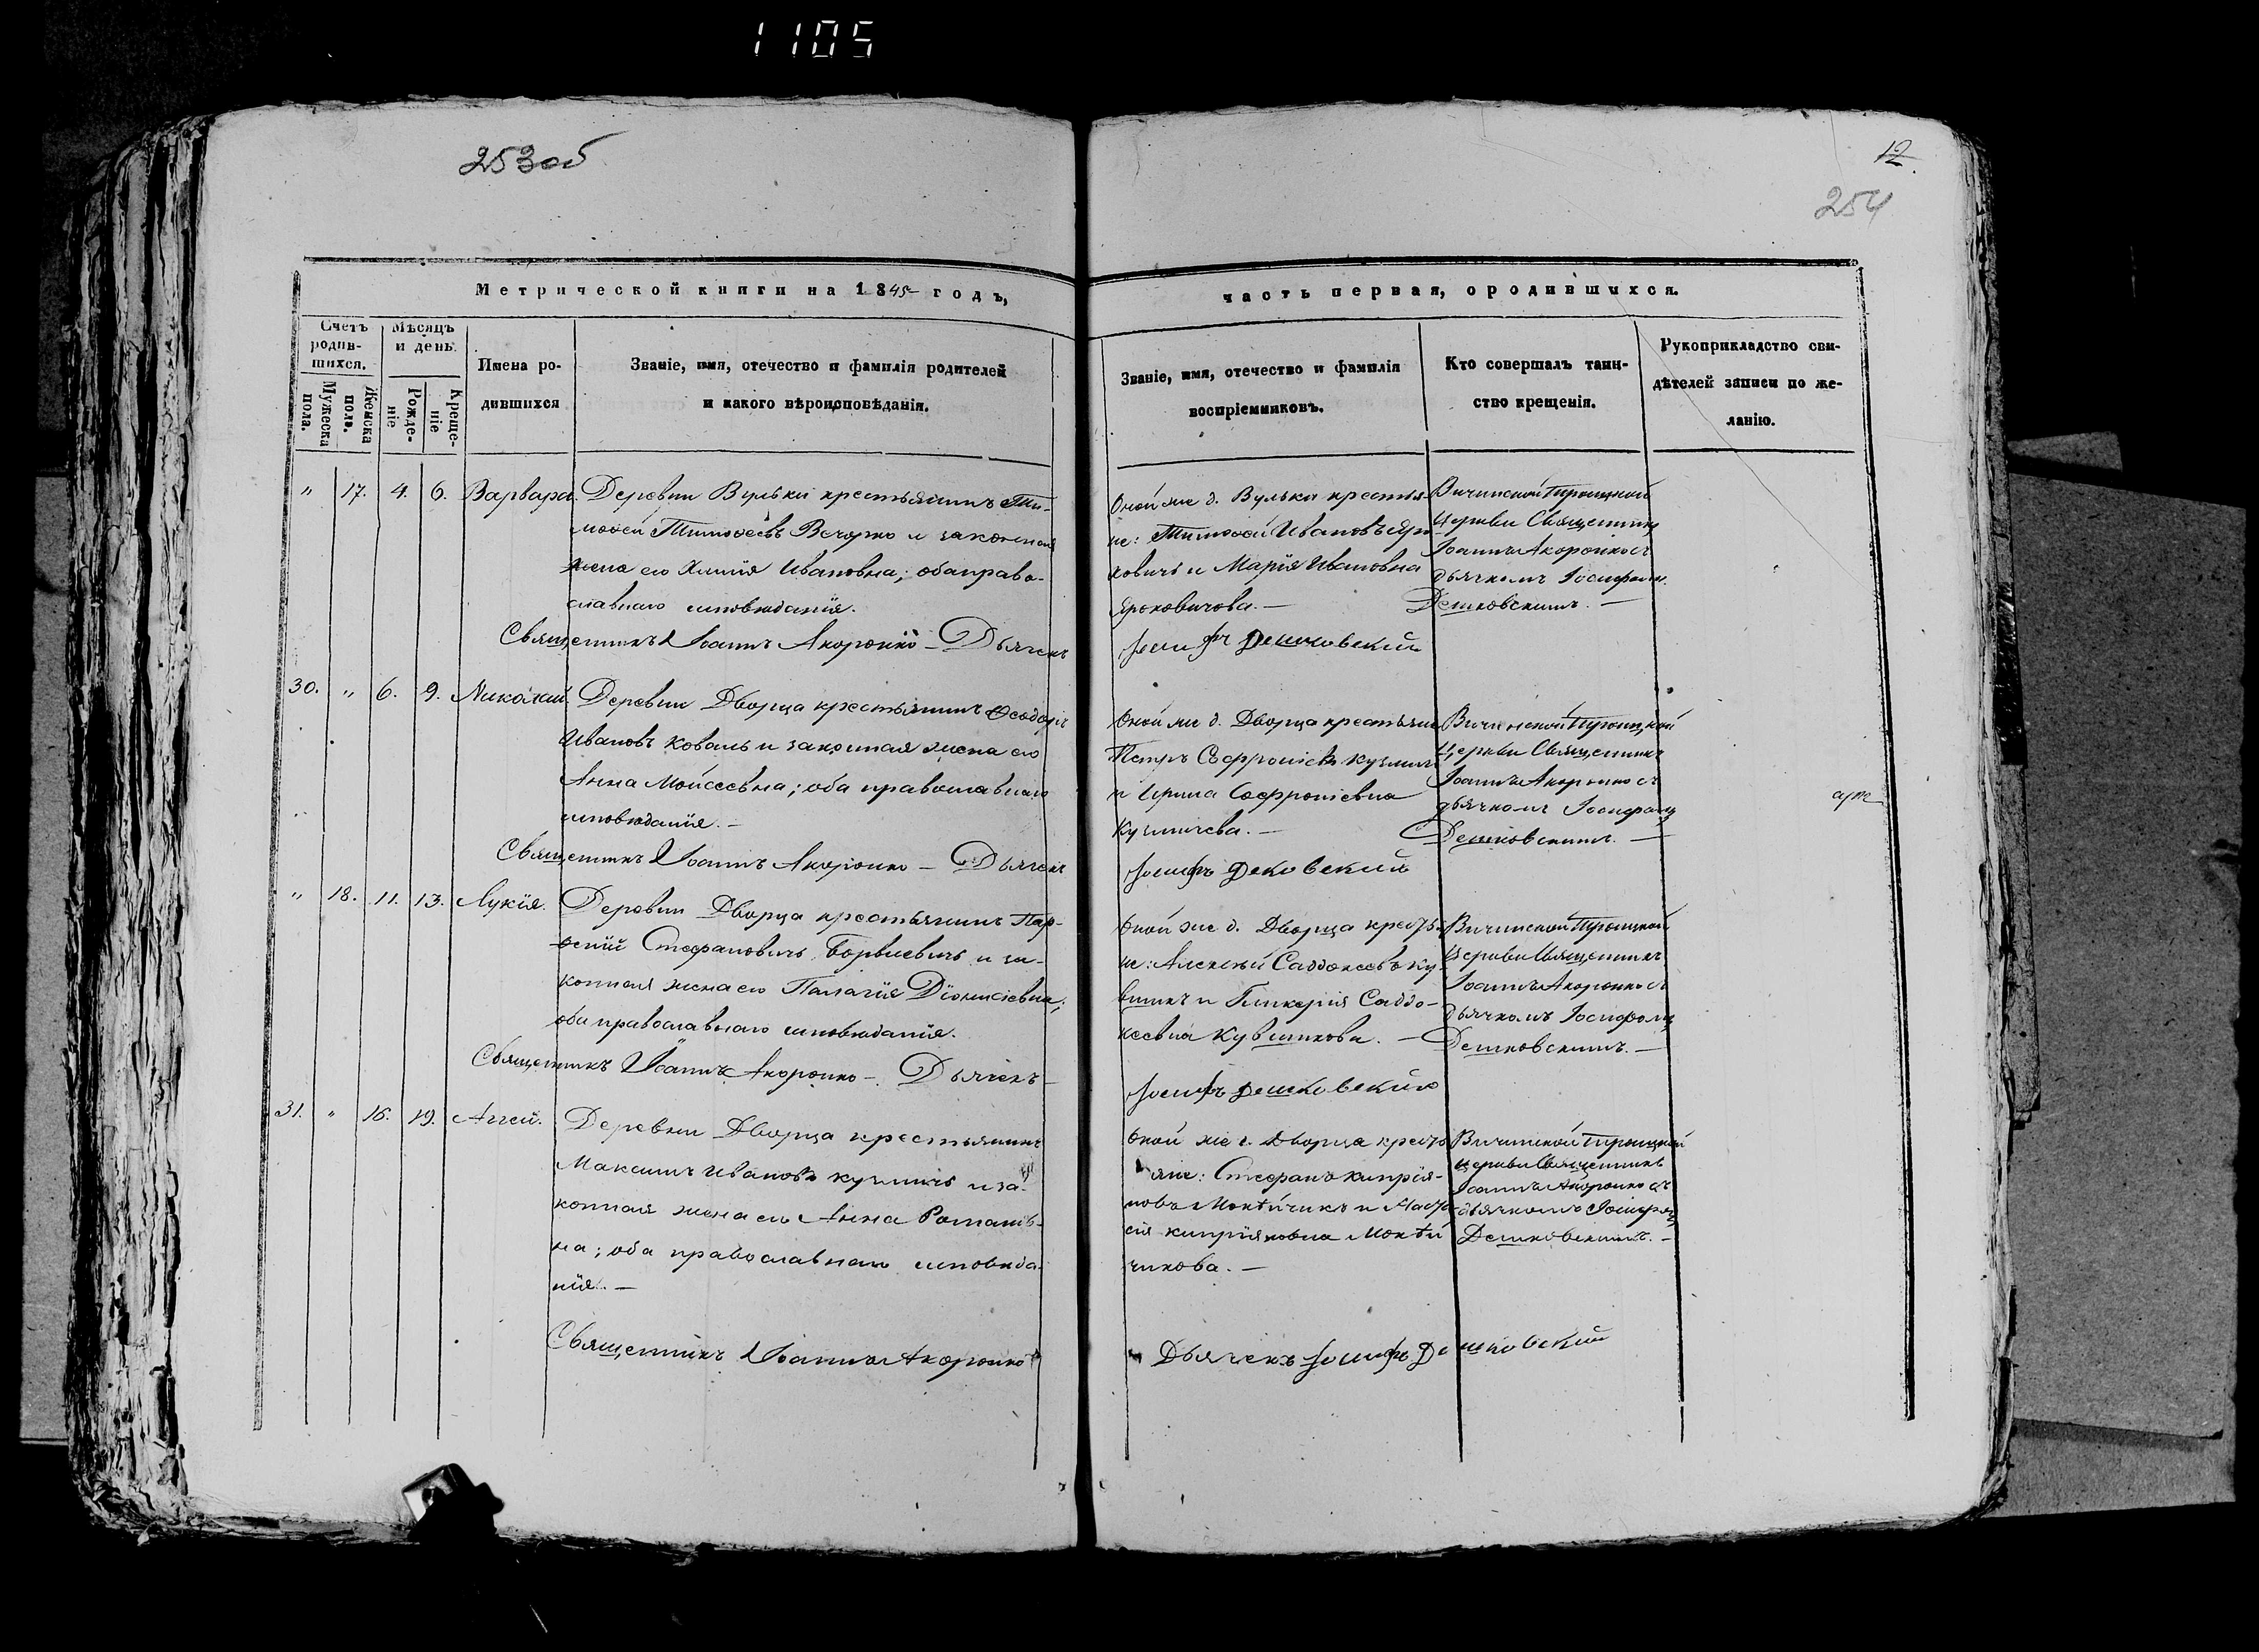 1105
253об
12
254
Метрической книги на 1845 годъ,
часть первая, о родившихся.
Счетъ родившихся.
Мужеска пола.
Женска пола.
Мѣсяцъ и день.
Рожденіе
Крещеніе
Имена родившихся
Званіе, имя, отечество и фамилія родителей
и какого вѣроисповѣданія.
Званіе, имя, отечество и фамилія
воспріемниковъ.
Кто совершалъ таинство крещенія.
Рукоприкладство свидѣтелей записи по желанію.
" 17. 4. 6. Варвара. Деревни Вульки крестьянинъ Ти-
моѳей Тимоѳеевъ и законная
жена его Ивановна; оба право-
славнаго исповѣданія.
Священникъ Іоаннъ Акоронко – Дьячекъ
Оной же д. Вульки крестья-
не: Тимоѳей Ивановъ Яро-
ховичъ и Марія Ивановна
Яроховичова. —
Вичинской Троицкой
Церкви Священникъ
Іоаннъ Акоронко съ
дьячкомъ Іосифомъ
Дешковскимъ. —
Іосифъ Дешковскій
30. " 6. 9. Николай. Деревни Дворца крестьянинъ Ѳеодоръ
Ивановъ Коваль и законная жена его
Анна Мойсеевна; оба православнаго
исповѣданія. —
Священникъ Іоаннъ Акоронко — Дьячекъ
Оной же д. Дворца крестьяне
Петръ Софроніевъ Кузмичъ
и Ирина Софроніевна
Кузмичева. —
Вичинской Троицкой
Церкви Священникъ
Іоаннъ Акоронко съ
дьячкомъ Іосифомъ
Дешковскимъ. —
Іосифъ Дековскій
" 18. 11. 13. Лукія. Деревни Дворца крестьянинъ Пар-
ѳеній Стефановичъ и за-
конная жена его Палагія Діонисіевна;
оба православнаго исповѣданія.
Священникъ Іоаннъ Акоронко – Дьячекъ
Оной же д. Дворца крестья-
не: Алексѣй Саддокеевъ Ку-
вшикъ и Гликерія Саддо-
кеевна Кувшикова. —
Вичинской Троицкой
Церкви Священникъ
Іоаннъ Акоронко съ
дьячкомъ Іосифомъ
Дешковскимъ. —
Іосифъ Дешковскій
31. " 16. 19. Аггей. Деревни Дворца крестьянинъ
Максимъ Ивановъ Кузмичъ и за-
конная жена его Анна Романов-
на; оба православнаго исповѣда-
нія. —
Священникъ Іоаннъ Акоронко
Оной же д. Дворца кресть
яне: Стефанъ Кипрія-
новъ и Наста-
сія Кипріяновна
чикова. —
Вичинской Троицкой
Церкви Священникъ
Іоаннъ Акоронко съ
дьячкомъ Іосифомъ
Дешковскимъ. —
Дьячекъ Іосифъ Дешковскій